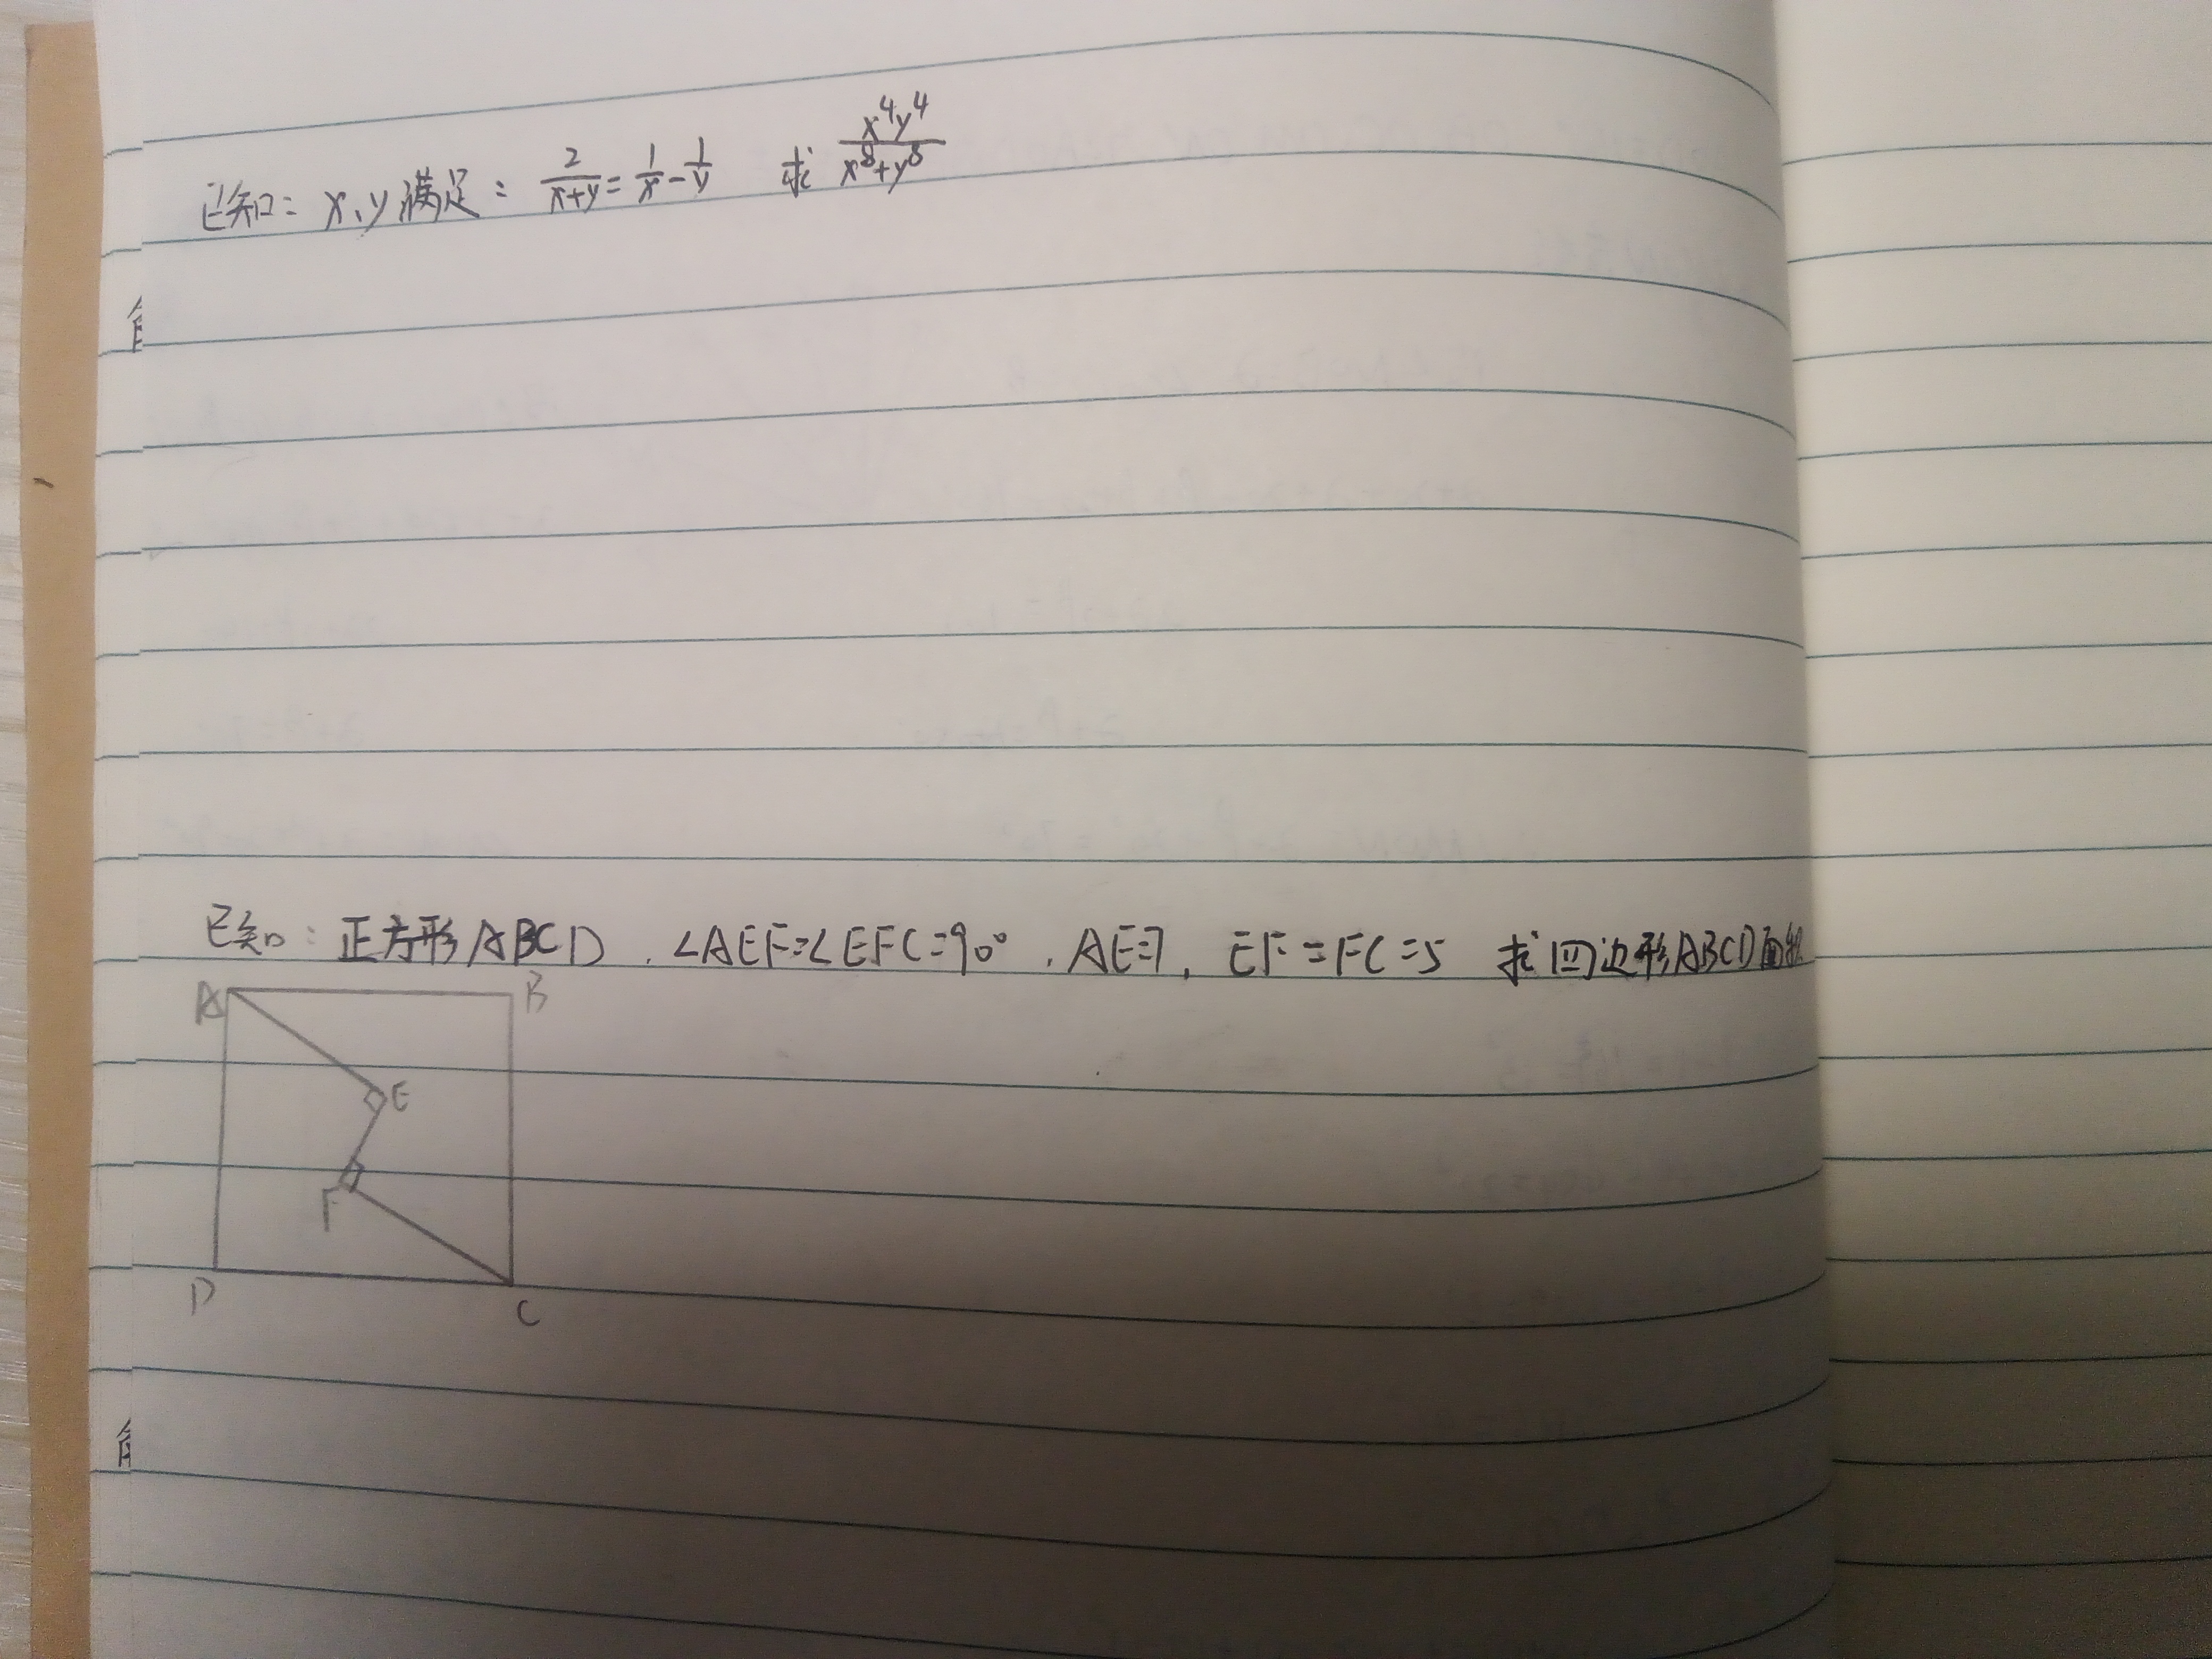 已知：x、y满足： 2/(x+y) = 1/x - 1/y 求 x⁴y⁴/(x⁸+y⁸)
已知：正方形ABCD．∠AEF=∠EFC=90°．AE=7，EF=FC=5 求四边形ABCD面积
A B
E
F
D C